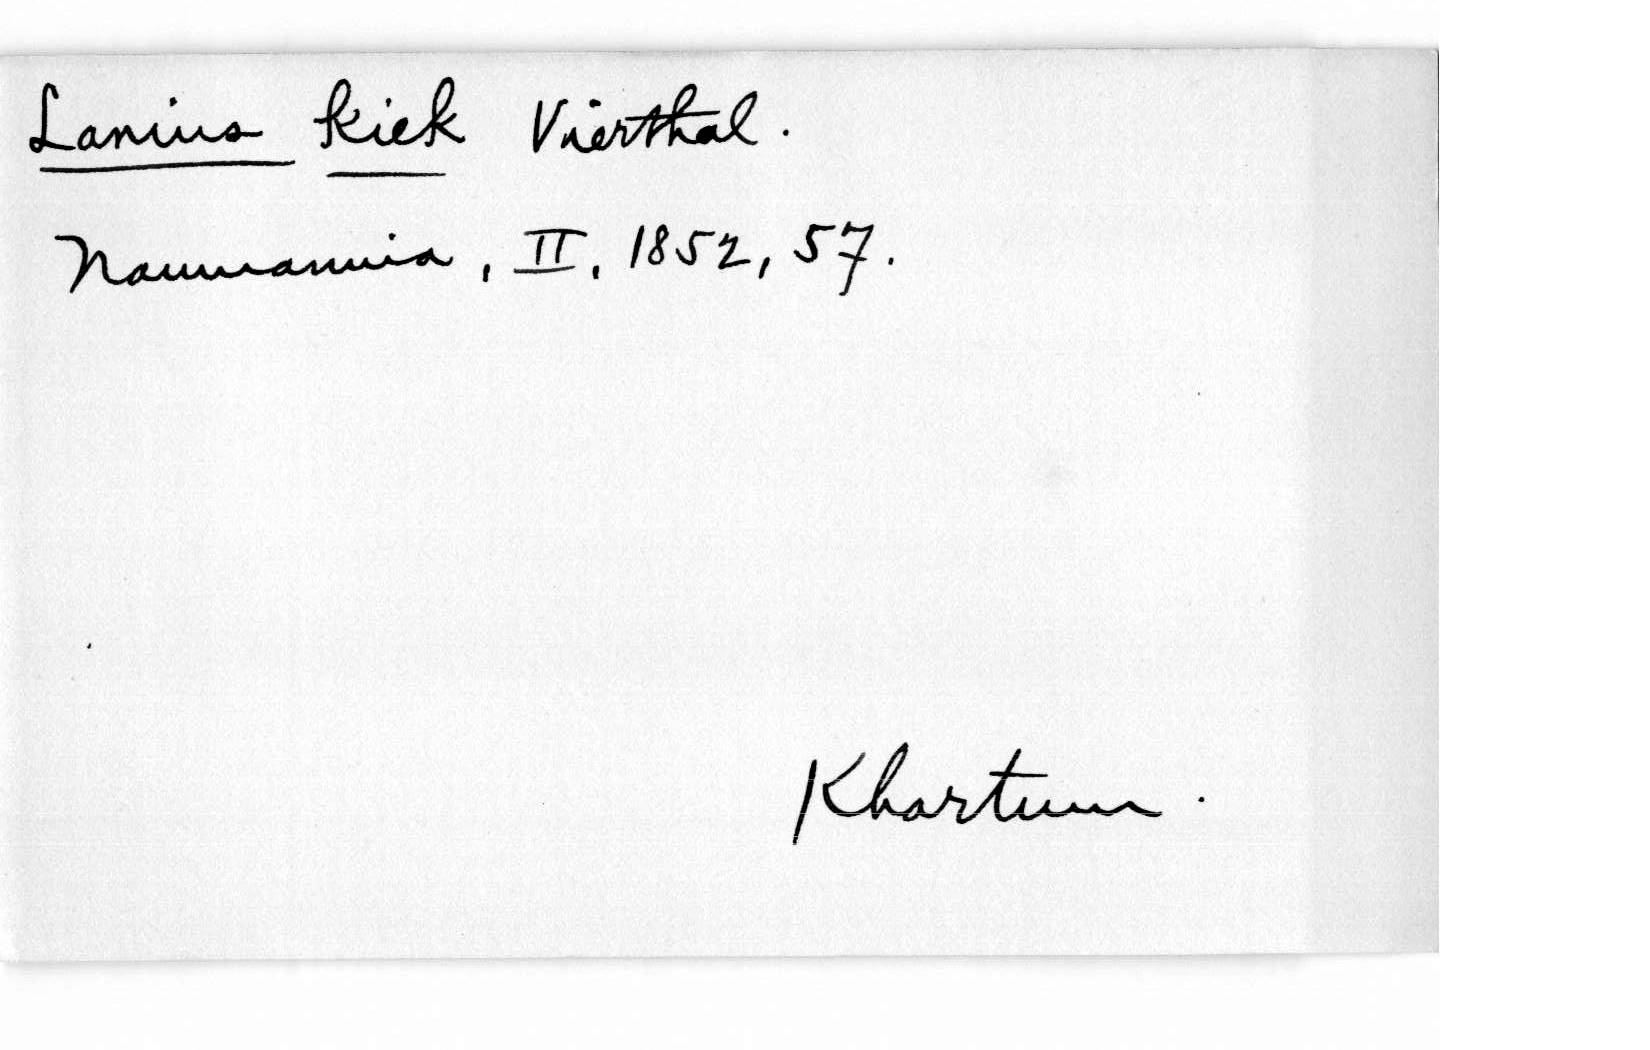 Lanius kiek Vierthal.
Naumannia, II, 1852, 57.
Khartum.